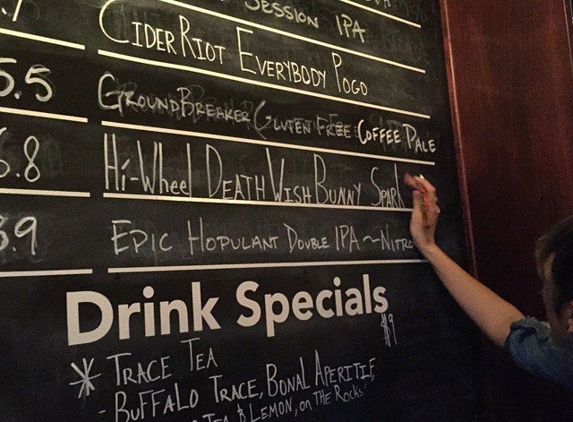 .7
Session IPA
CiderRiot Everybody Pogo
5.5 GroundBreaker Gluten Free Coffee Pale
6.8 Hi-Wheel Death Wish Bunny Spark
.9 Epic Hopulant Double IPA ~ Nitro
Drink Specials
$9
* Trace Tea
- Buffalo Trace, Bonal Aperitif,
Tea & Lemon, on the Rocks